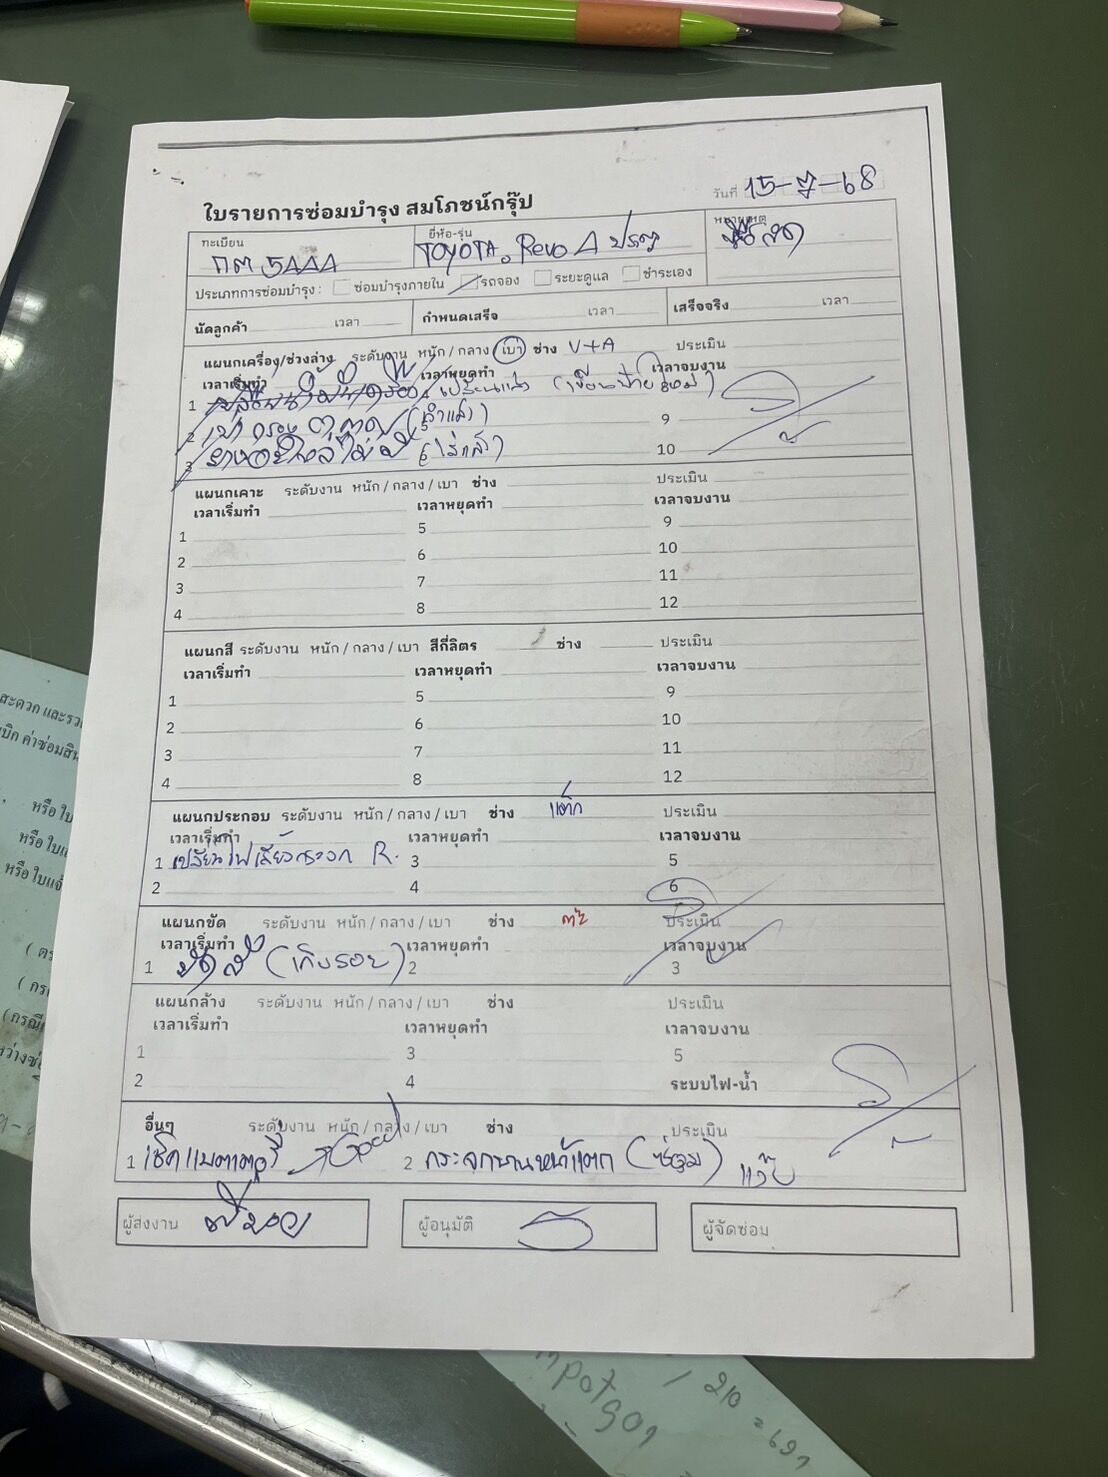 วันที่ 15-7-68
ใบรายการซ่อมบำรุง สมโภชน์กรุ๊ป
ทะเบียน ยี่ห้อ-รุ่น หมายเหตุ
TOYOTA. Revo 4 ประตู
ประเภทการซ่อมบำรุง : ซ่อมบำรุงภายใน รถจอง ระยะดูแล ชำระเอง
นัดลูกค้า เวลา กำหนดเสร็จ เวลา เสร็จจริง เวลา
แผนกเครื่อง/ช่วงล่าง ระดับงาน หนัก / กลาง / เบา ช่าง V+A ประเมิน
เวลาเริ่มทำ เวลาหยุดทำ เวลาจบงาน
1 เปลี่ยนน้ำมันเครื่อง 4 เปลี่ยนแล้ว
2 เป่ากรอง 5 9
3 6 10
แผนกเคาะ ระดับงาน หนัก / กลาง / เบา ช่าง ประเมิน
เวลาเริ่มทำ เวลาหยุดทำ เวลาจบงาน
1 5 9
2 6 10
3 7 11
4 8 12
แผนกสี ระดับงาน หนัก / กลาง / เบา สีกี่ลิตร ช่าง ประเมิน
เวลาเริ่มทำ เวลาหยุดทำ เวลาจบงาน
1 5 9
2 6 10
3 7 11
4 8 12
แผนกประกอบ ระดับงาน หนัก / กลาง / เบา ช่าง แต๊ก ประเมิน
เวลาเริ่มทำ เวลาหยุดทำ เวลาจบงาน
1 เปลี่ยนไฟเลี้ยวกระจก R. 3 5
2 4 6
แผนกขัด ระดับงาน หนัก / กลาง / เบา ช่าง ประเมิน
เวลาเริ่มทำ เวลาหยุดทำ เวลาจบงาน
1 ขัดสี (เก็บรอย) 2 3
แผนกล้าง ระดับงาน หนัก / กลาง / เบา ช่าง ประเมิน
เวลาเริ่มทำ เวลาหยุดทำ เวลาจบงาน
1 3 5
2 4 ระบบไฟ-น้ำ
อื่นๆ ระดับงาน หนัก / กลาง / เบา ช่าง ประเมิน
1 เช็คแบตเตอรี่ Good 2 กระจกบานหน้าแตก (ซ่อม)
ผู้ส่งงาน ผู้อนุมัติ ผู้จัดซ่อม
สะดวก และรว
บิก ค่าซ่อมสิน
หรือ ใบ
หรือ ใบ
หรือ ใบแจ้